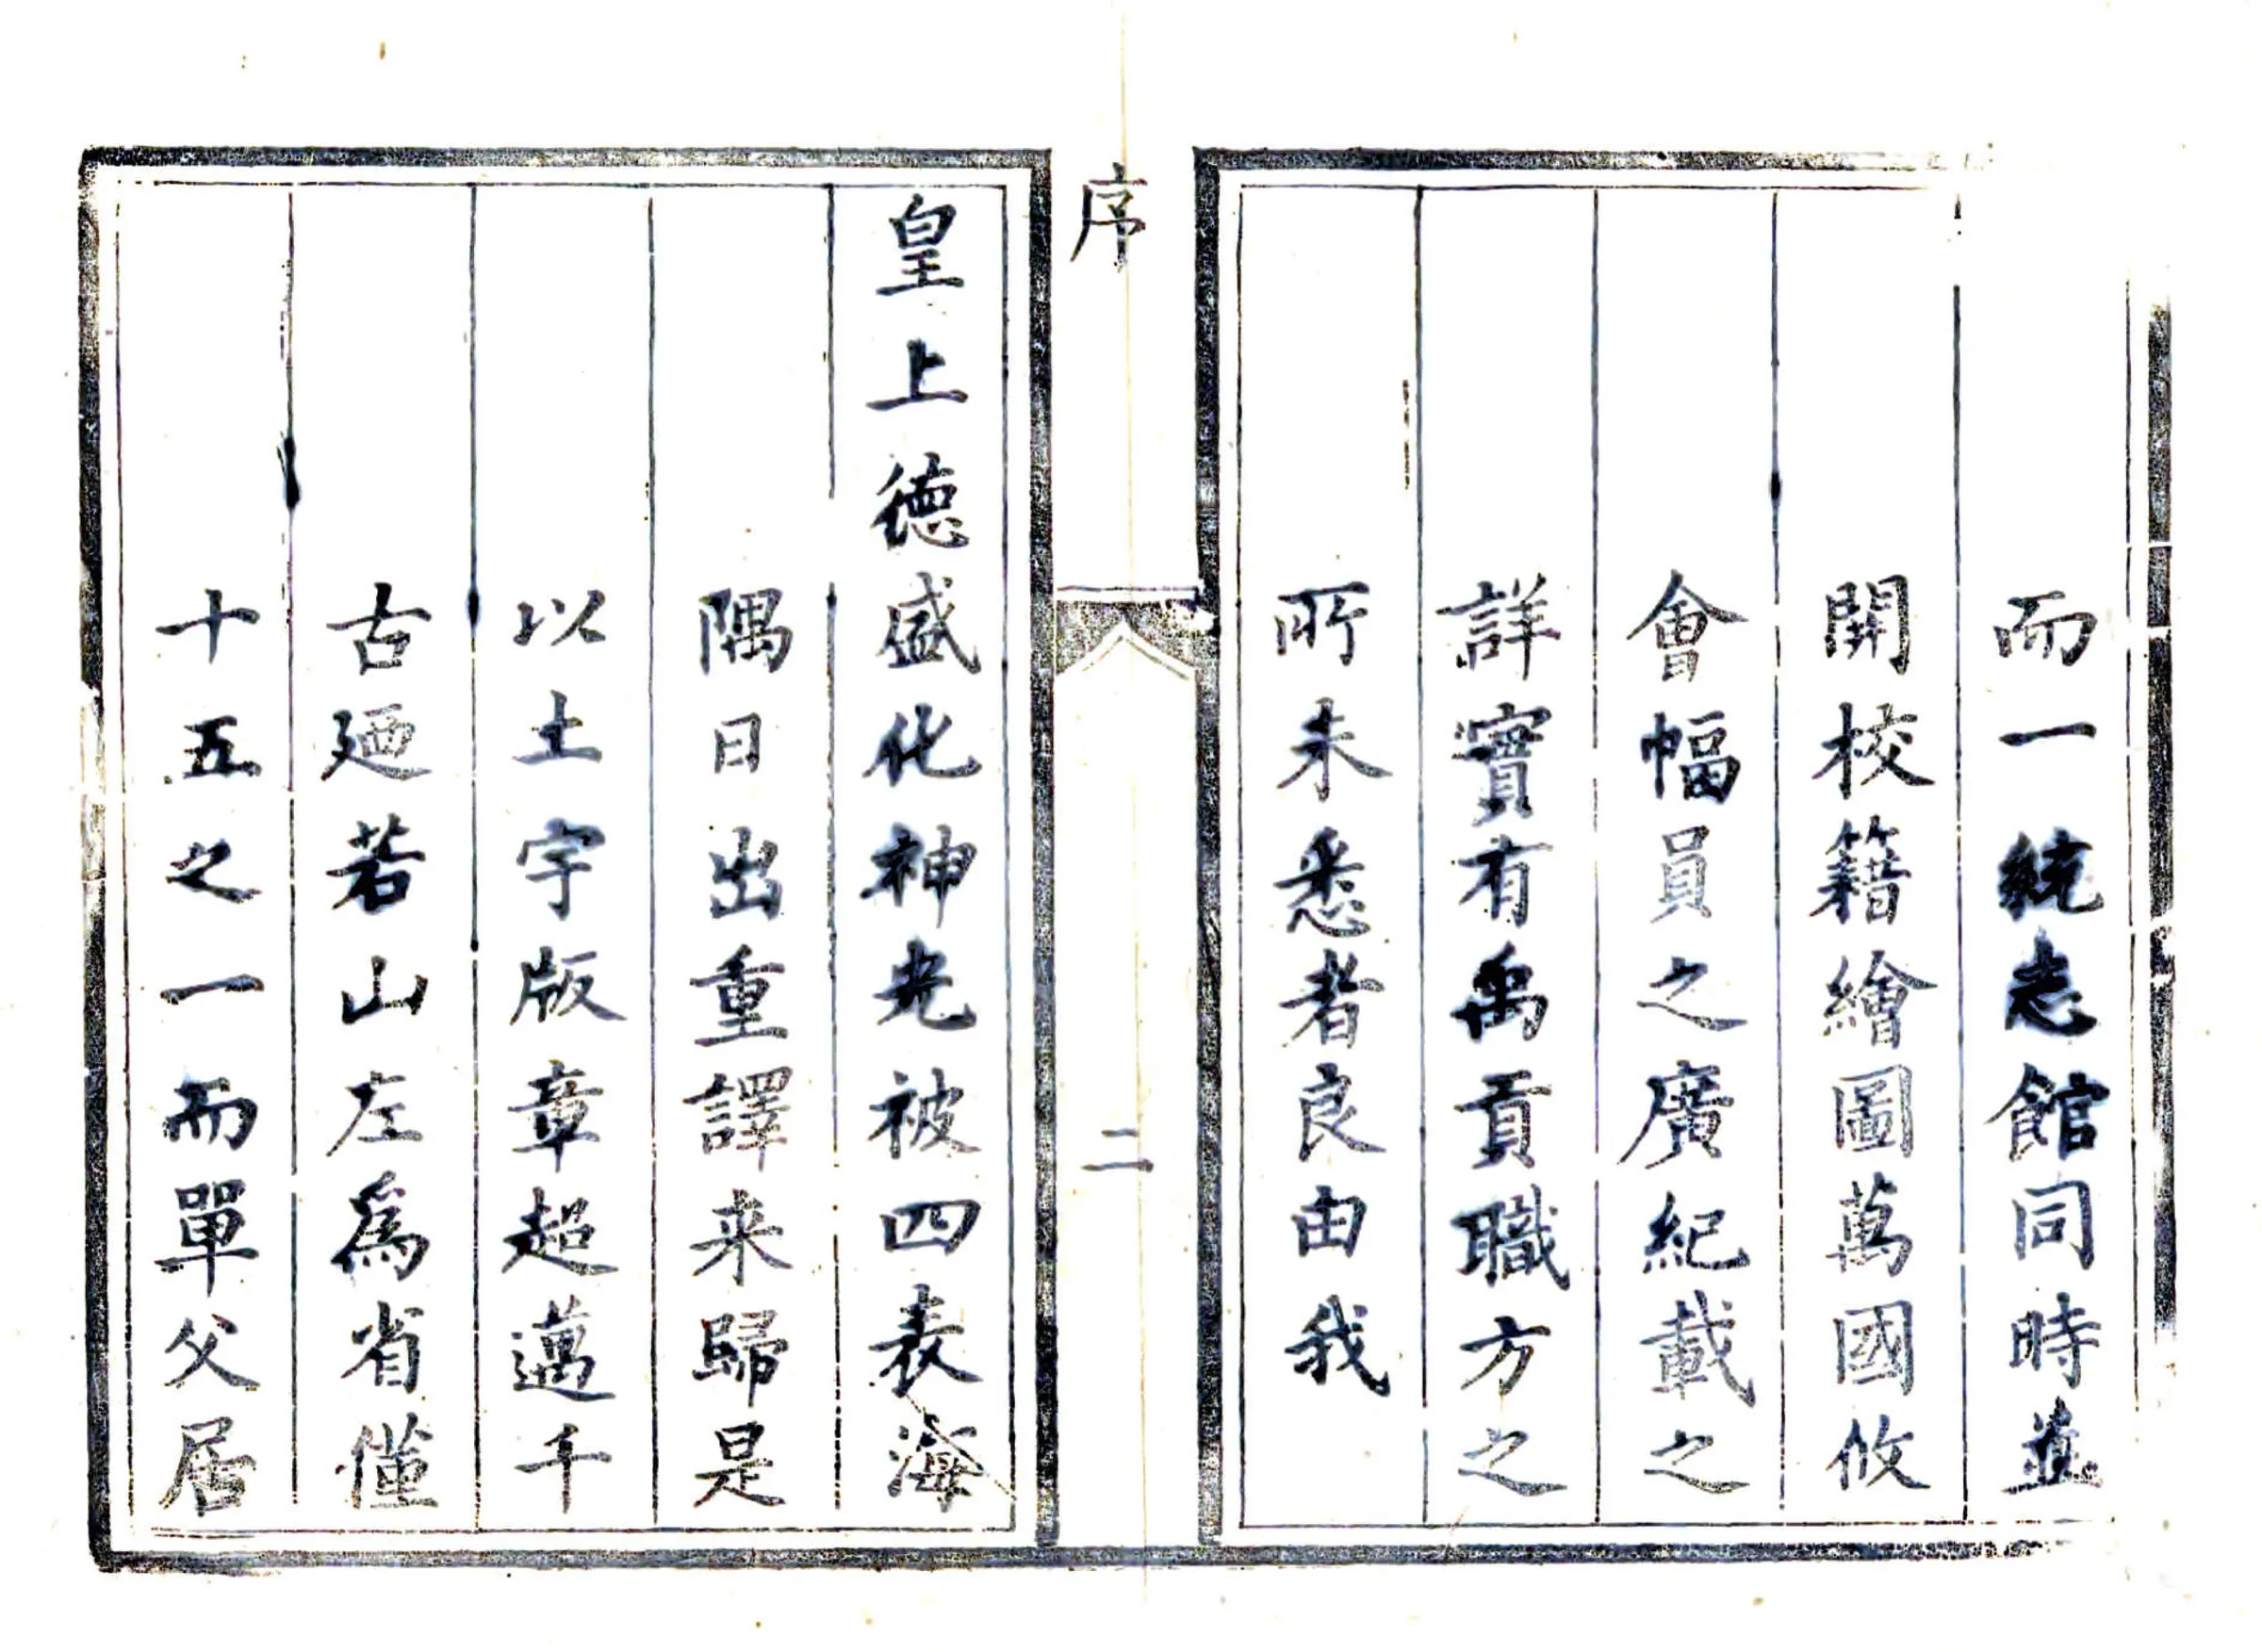 而一統志館同時並
開校籍繪圖萬國攸
會幅員之廣紀載之
詳實有禹貢職方之
所未悉者良由我
序
二
皇上德盛化神光被四表海
隅日出重譯来歸是
以土宇版章超邁千
古廼若山左為省僅
十五之一而單父居